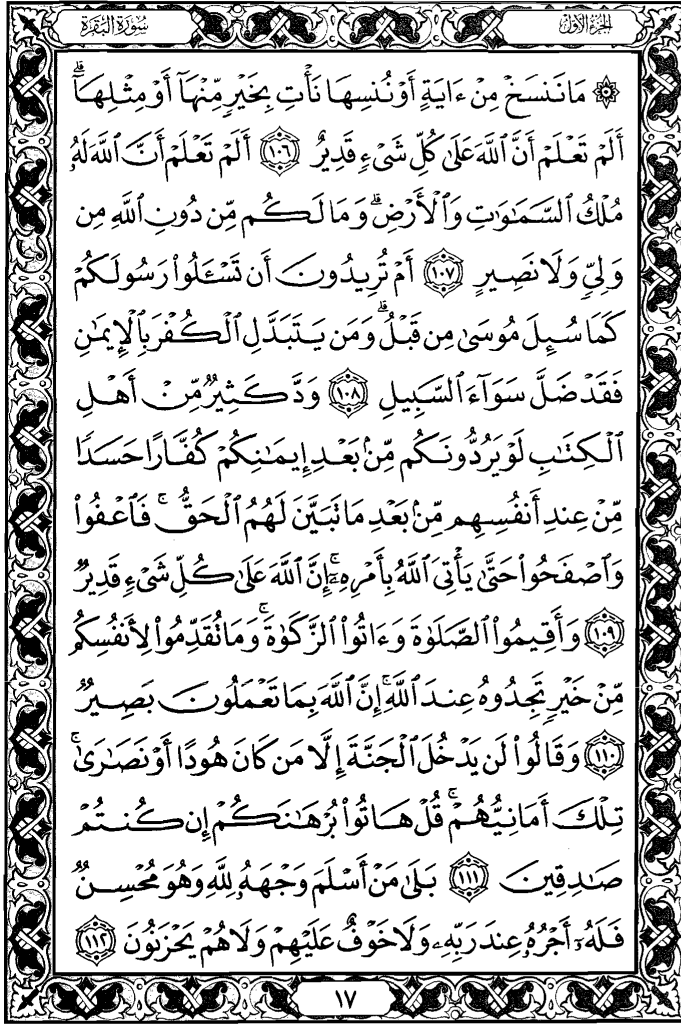 الجزء الأول
سورة البقرة
۞ مَا نَنسَخْ مِنْ ءَايَةٍ أَوْ نُنسِهَا نَأْتِ بِخَيْرٍ مِّنْهَآ أَوْ مِثْلِهَآۗ
أَلَمْ تَعْلَمْ أَنَّ ٱللَّهَ عَلَىٰ كُلِّ شَىْءٍ قَدِيرٌ ١٠٦ أَلَمْ تَعْلَمْ أَنَّ ٱللَّهَ لَهُۥ
مُلْكُ ٱلسَّمَٰوَٰتِ وَٱلْأَرْضِۗ وَمَا لَكُم مِّن دُونِ ٱللَّهِ مِن
وَلِىٍّ وَلَا نَصِيرٍ ١٠٧ أَمْ تُرِيدُونَ أَن تَسْـَٔلُوا۟ رَسُولَكُمْ
كَمَا سُئِلَ مُوسَىٰ مِن قَبْلُۗ وَمَن يَتَبَدَّلِ ٱلْكُفْرَ بِٱلْإِيمَٰنِ
فَقَدْ ضَلَّ سَوَآءَ ٱلسَّبِيلِ ١٠٨ وَدَّ كَثِيرٌ مِّنْ أَهْلِ
ٱلْكِتَٰبِ لَوْ يَرُدُّونَكُم مِّنۢ بَعْدِ إِيمَٰنِكُمْ كُفَّارًا حَسَدًا
مِّنْ عِندِ أَنفُسِهِم مِّنۢ بَعْدِ مَا تَبَيَّنَ لَهُمُ ٱلْحَقُّۖ فَٱعْفُوا۟
وَٱصْفَحُوا۟ حَتَّىٰ يَأْتِىَ ٱللَّهُ بِأَمْرِهِۦٓۗ إِنَّ ٱللَّهَ عَلَىٰ كُلِّ شَىْءٍ قَدِيرٌ
١٠٩ وَأَقِيمُوا۟ ٱلصَّلَوٰةَ وَءَاتُوا۟ ٱلزَّكَوٰةَۚ وَمَا تُقَدِّمُوا۟ لِأَنفُسِكُم
مِّنْ خَيْرٍ تَجِدُوهُ عِندَ ٱللَّهِۗ إِنَّ ٱللَّهَ بِمَا تَعْمَلُونَ بَصِيرٌ
١١٠ وَقَالُوا۟ لَن يَدْخُلَ ٱلْجَنَّةَ إِلَّا مَن كَانَ هُودًا أَوْ نَصَٰرَىٰۗ
تِلْكَ أَمَانِيُّهُمْۗ قُلْ هَاتُوا۟ بُرْهَٰنَكُمْ إِن كُنتُمْ
صَٰدِقِينَ ١١١ بَلَىٰ مَنْ أَسْلَمَ وَجْهَهُۥ لِلَّهِ وَهُوَ مُحْسِنٌ
فَلَهُۥٓ أَجْرُهُۥ عِندَ رَبِّهِۦ وَلَا خَوْفٌ عَلَيْهِمْ وَلَا هُمْ يَحْزَنُونَ ١١٢
١٧